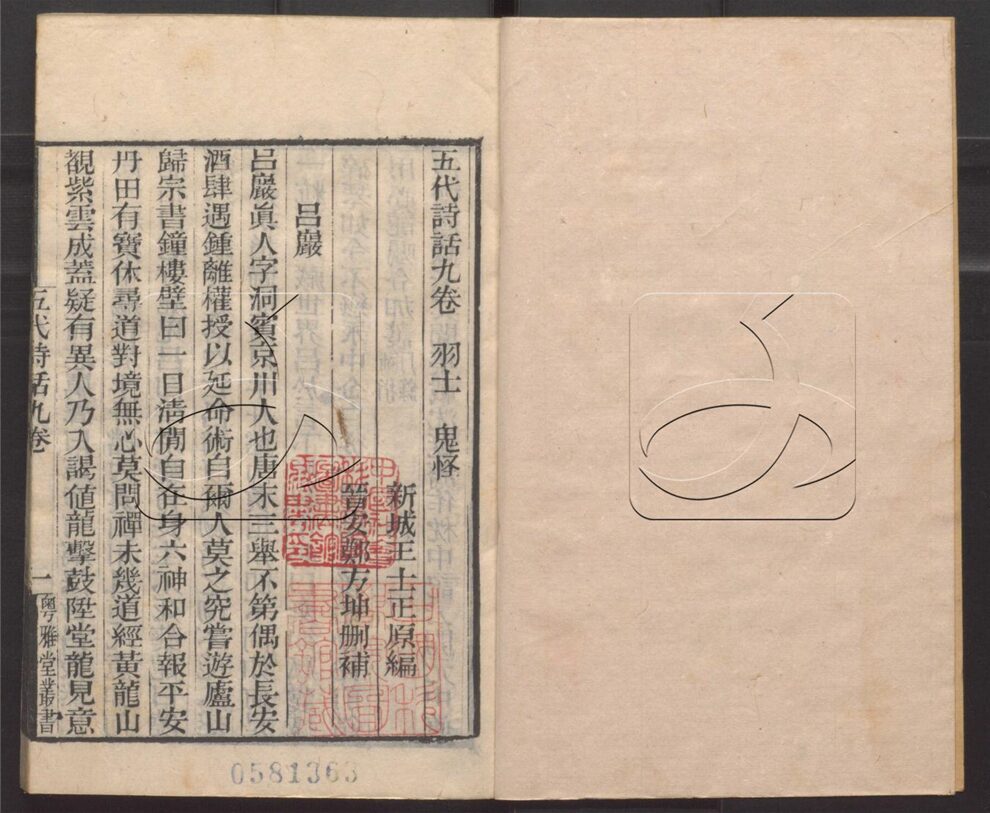 五代詩話九卷 羽士 鬼怪
新城王士正原編
鄭方坤刪補
呂巖
呂巖眞人字洞賓京川人也唐末三舉不第偶於長安
酒肆遇鍾離權授以延命術自爾人莫之究嘗遊廬山
歸宗書鐘樓壁曰一日清閒自在身六神和合報平安
丹田有寶休尋道對境無心莫問禪未幾道經黃龍山
覩紫雲成蓋疑有異人乃入謁値龍擊鼓陞堂龍見意
五代詩話九卷 一 粵雅堂叢書
0581363